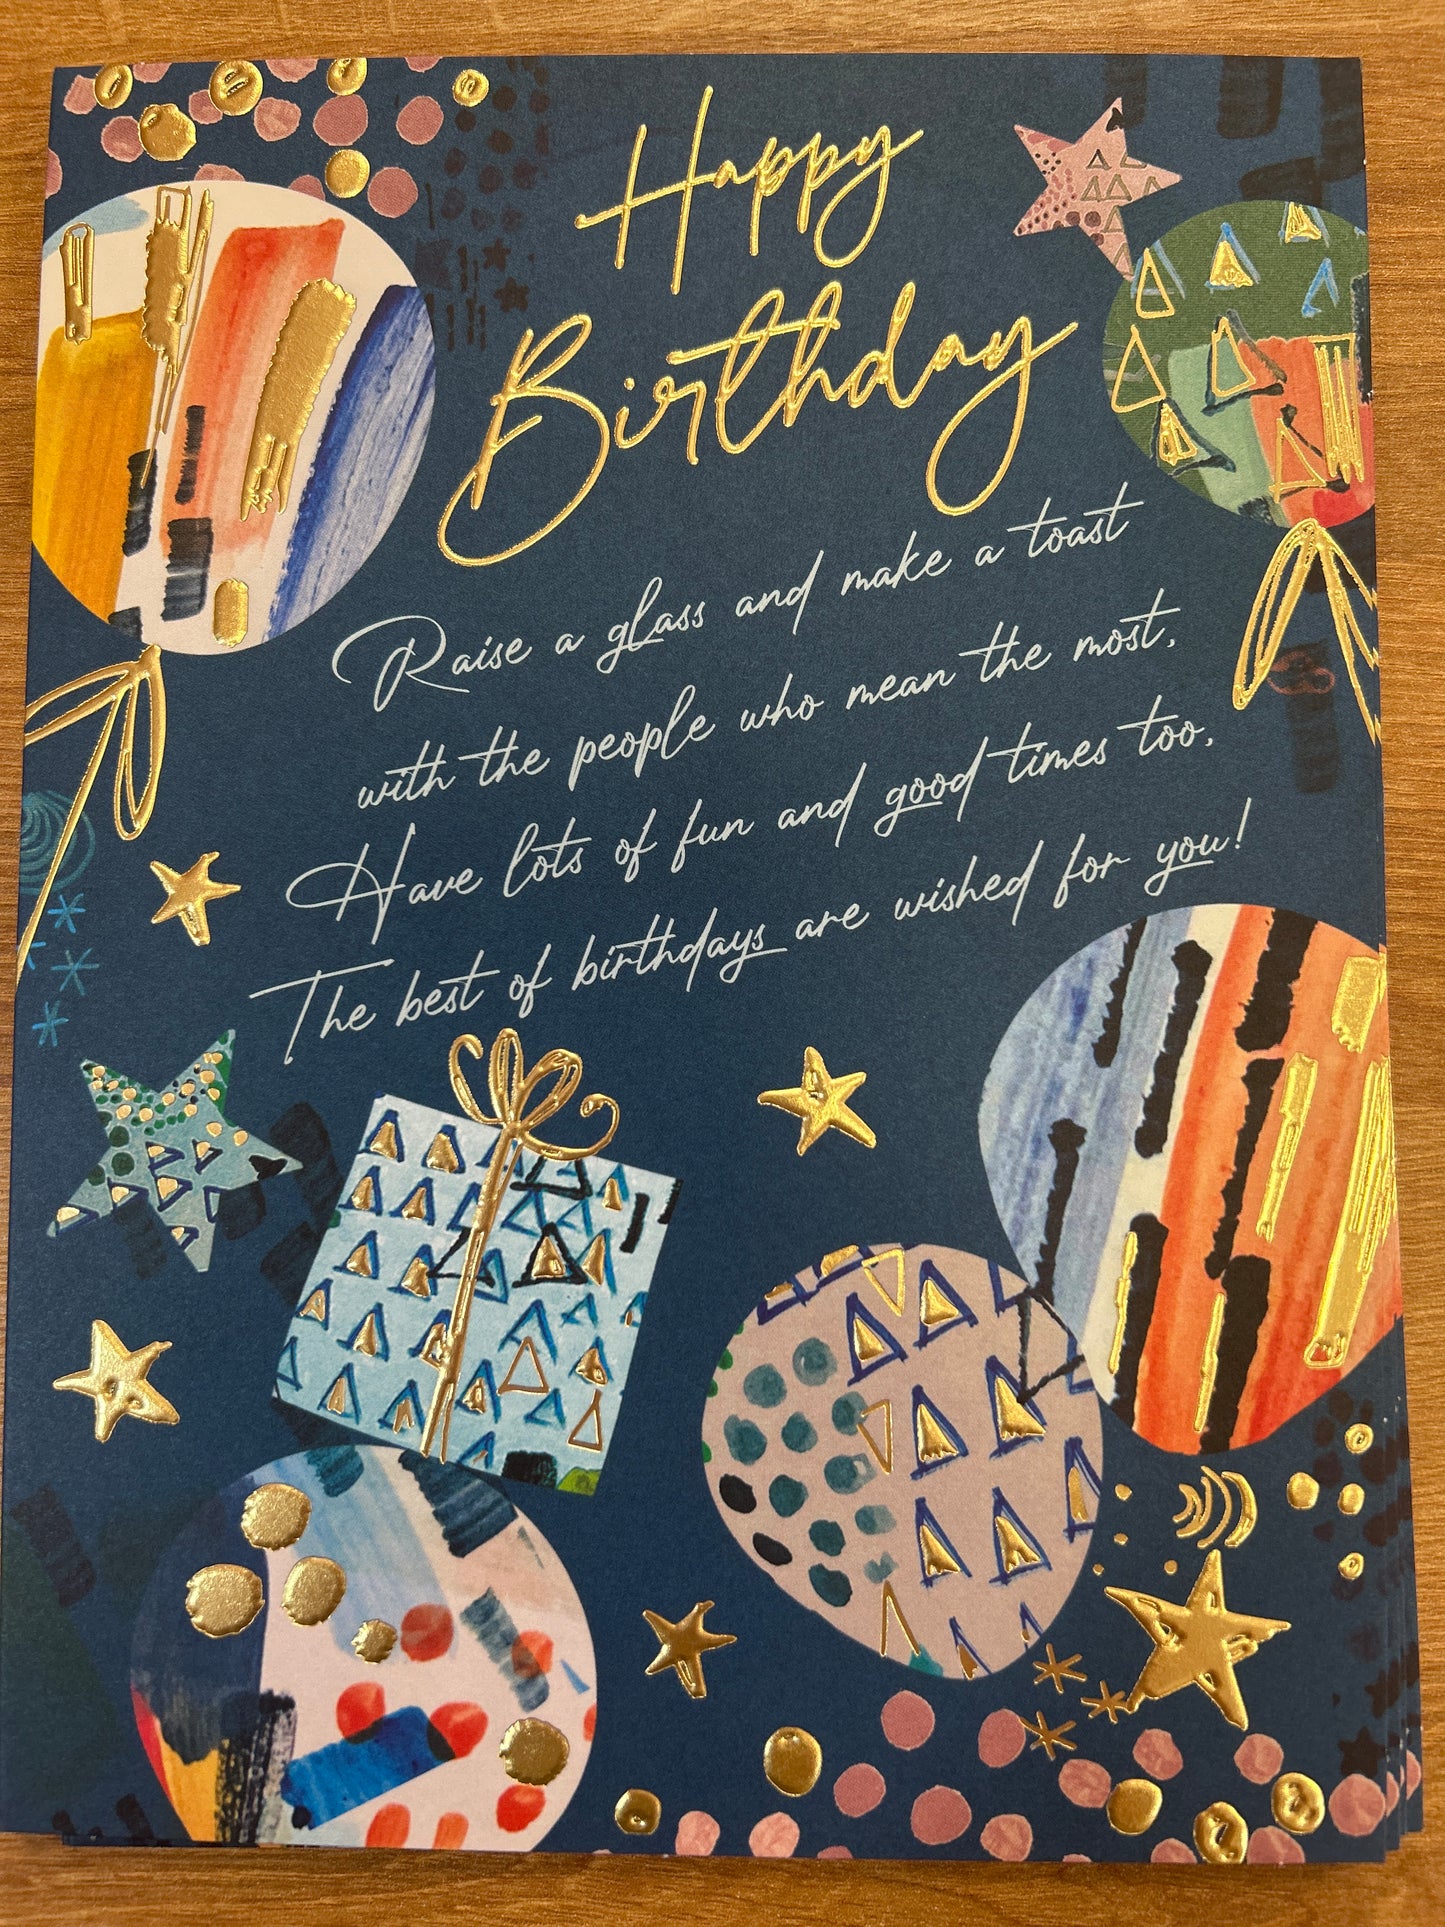 Happy
Birthday
Raise a glass and make a toast
with the people who mean the most,
Have lots of fun and good times too,
The best of birthdays are wished for you!